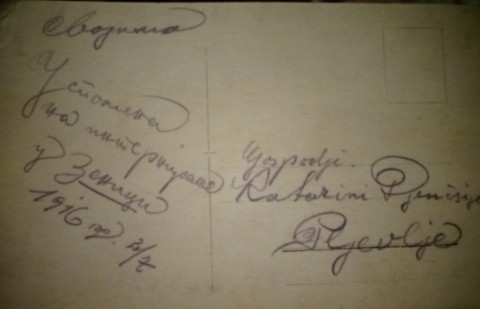 Својима
Успомена
на интернирање
у Зеници
1916 год. 20/7
Gospodji.
Katarini
Pljevlje